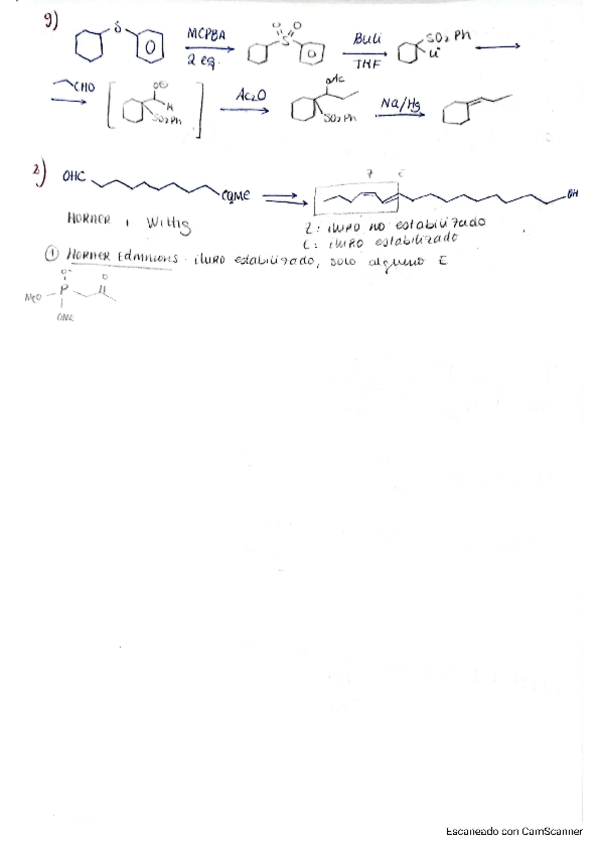 9) S MCPBA 2 eq. O O S BuLi THF SO2Ph Li
CHO O⊖ H SO2Ph Ac2O OAc SO2Ph Na/Hg
2) OHC CO2Me Z E OH
HORNER y Wittig Z: iluro no estabilizado
E: iluro estabilizado
① HORNER Edmmons iluro estabilizado, solo alqueno E
O⁻ O
MeO P
OMe
Escaneado con CamScanner